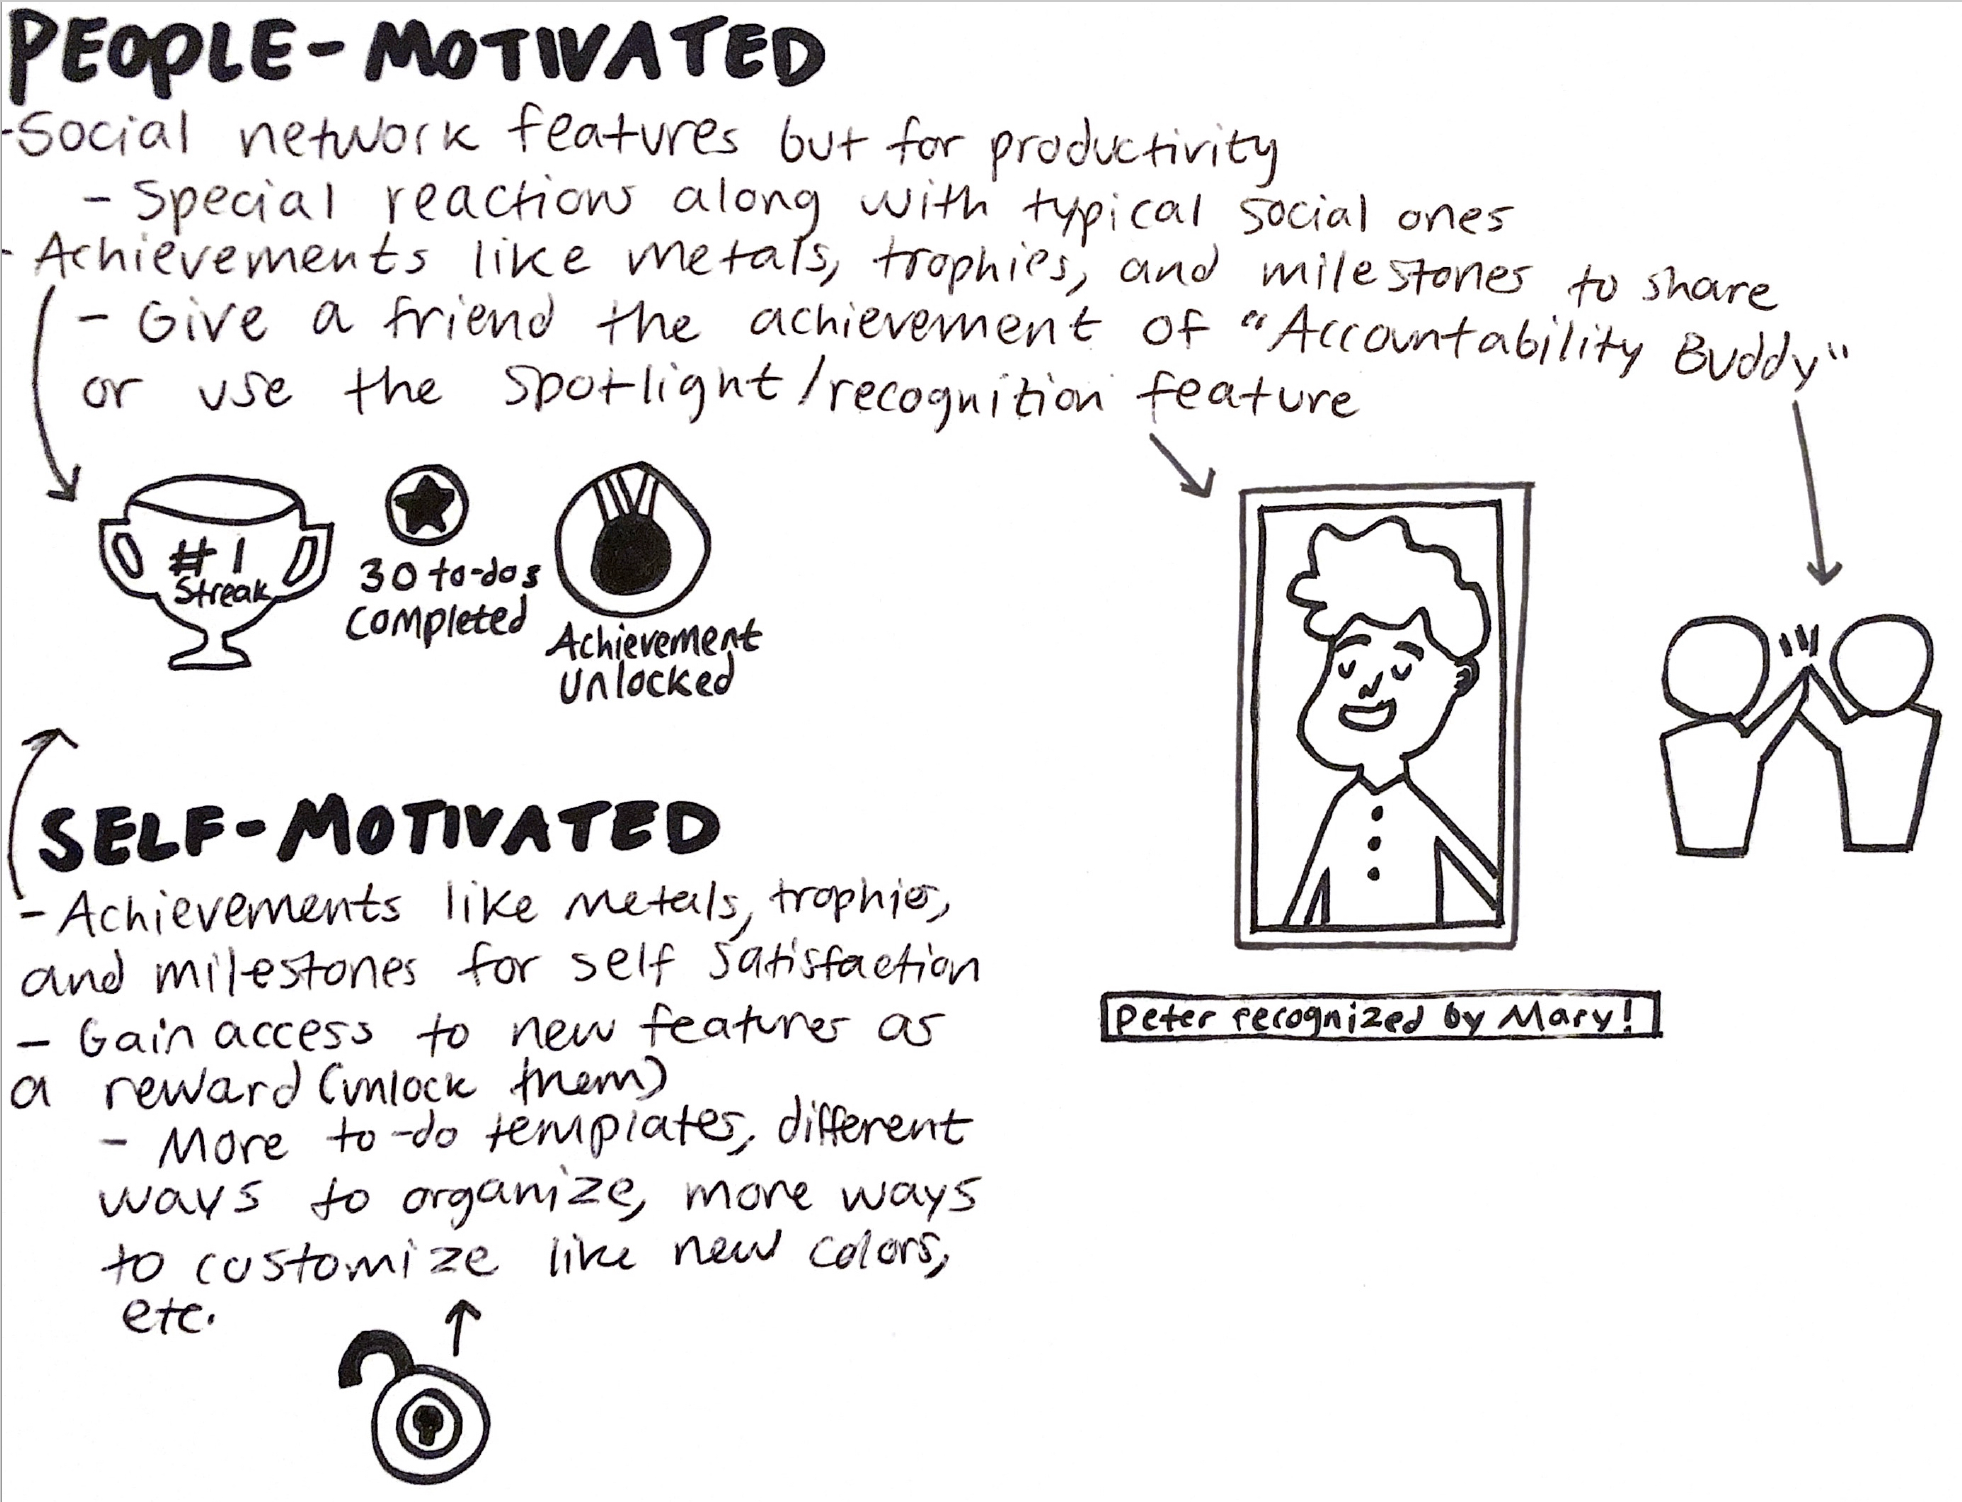 PEOPLE-MOTIVATED
-Social network features but for productivity
- Special reactions along with typical social ones
- Achievements like metals, trophies, and milestones to share
- Give a friend the achievement of "Accountability Buddy"
or use the spotlight/recognition feature
#1
Streak
30 to-dos
completed
Achievement
unlocked
SELF-MOTIVATED
- Achievements like metals, trophies,
and milestones for self satisfaction
- Gain access to new features as
a reward (unlock them)
- More to-do templates, different
ways to organize, more ways
to customize like new colors,
etc.
Peter recognized by Mary!